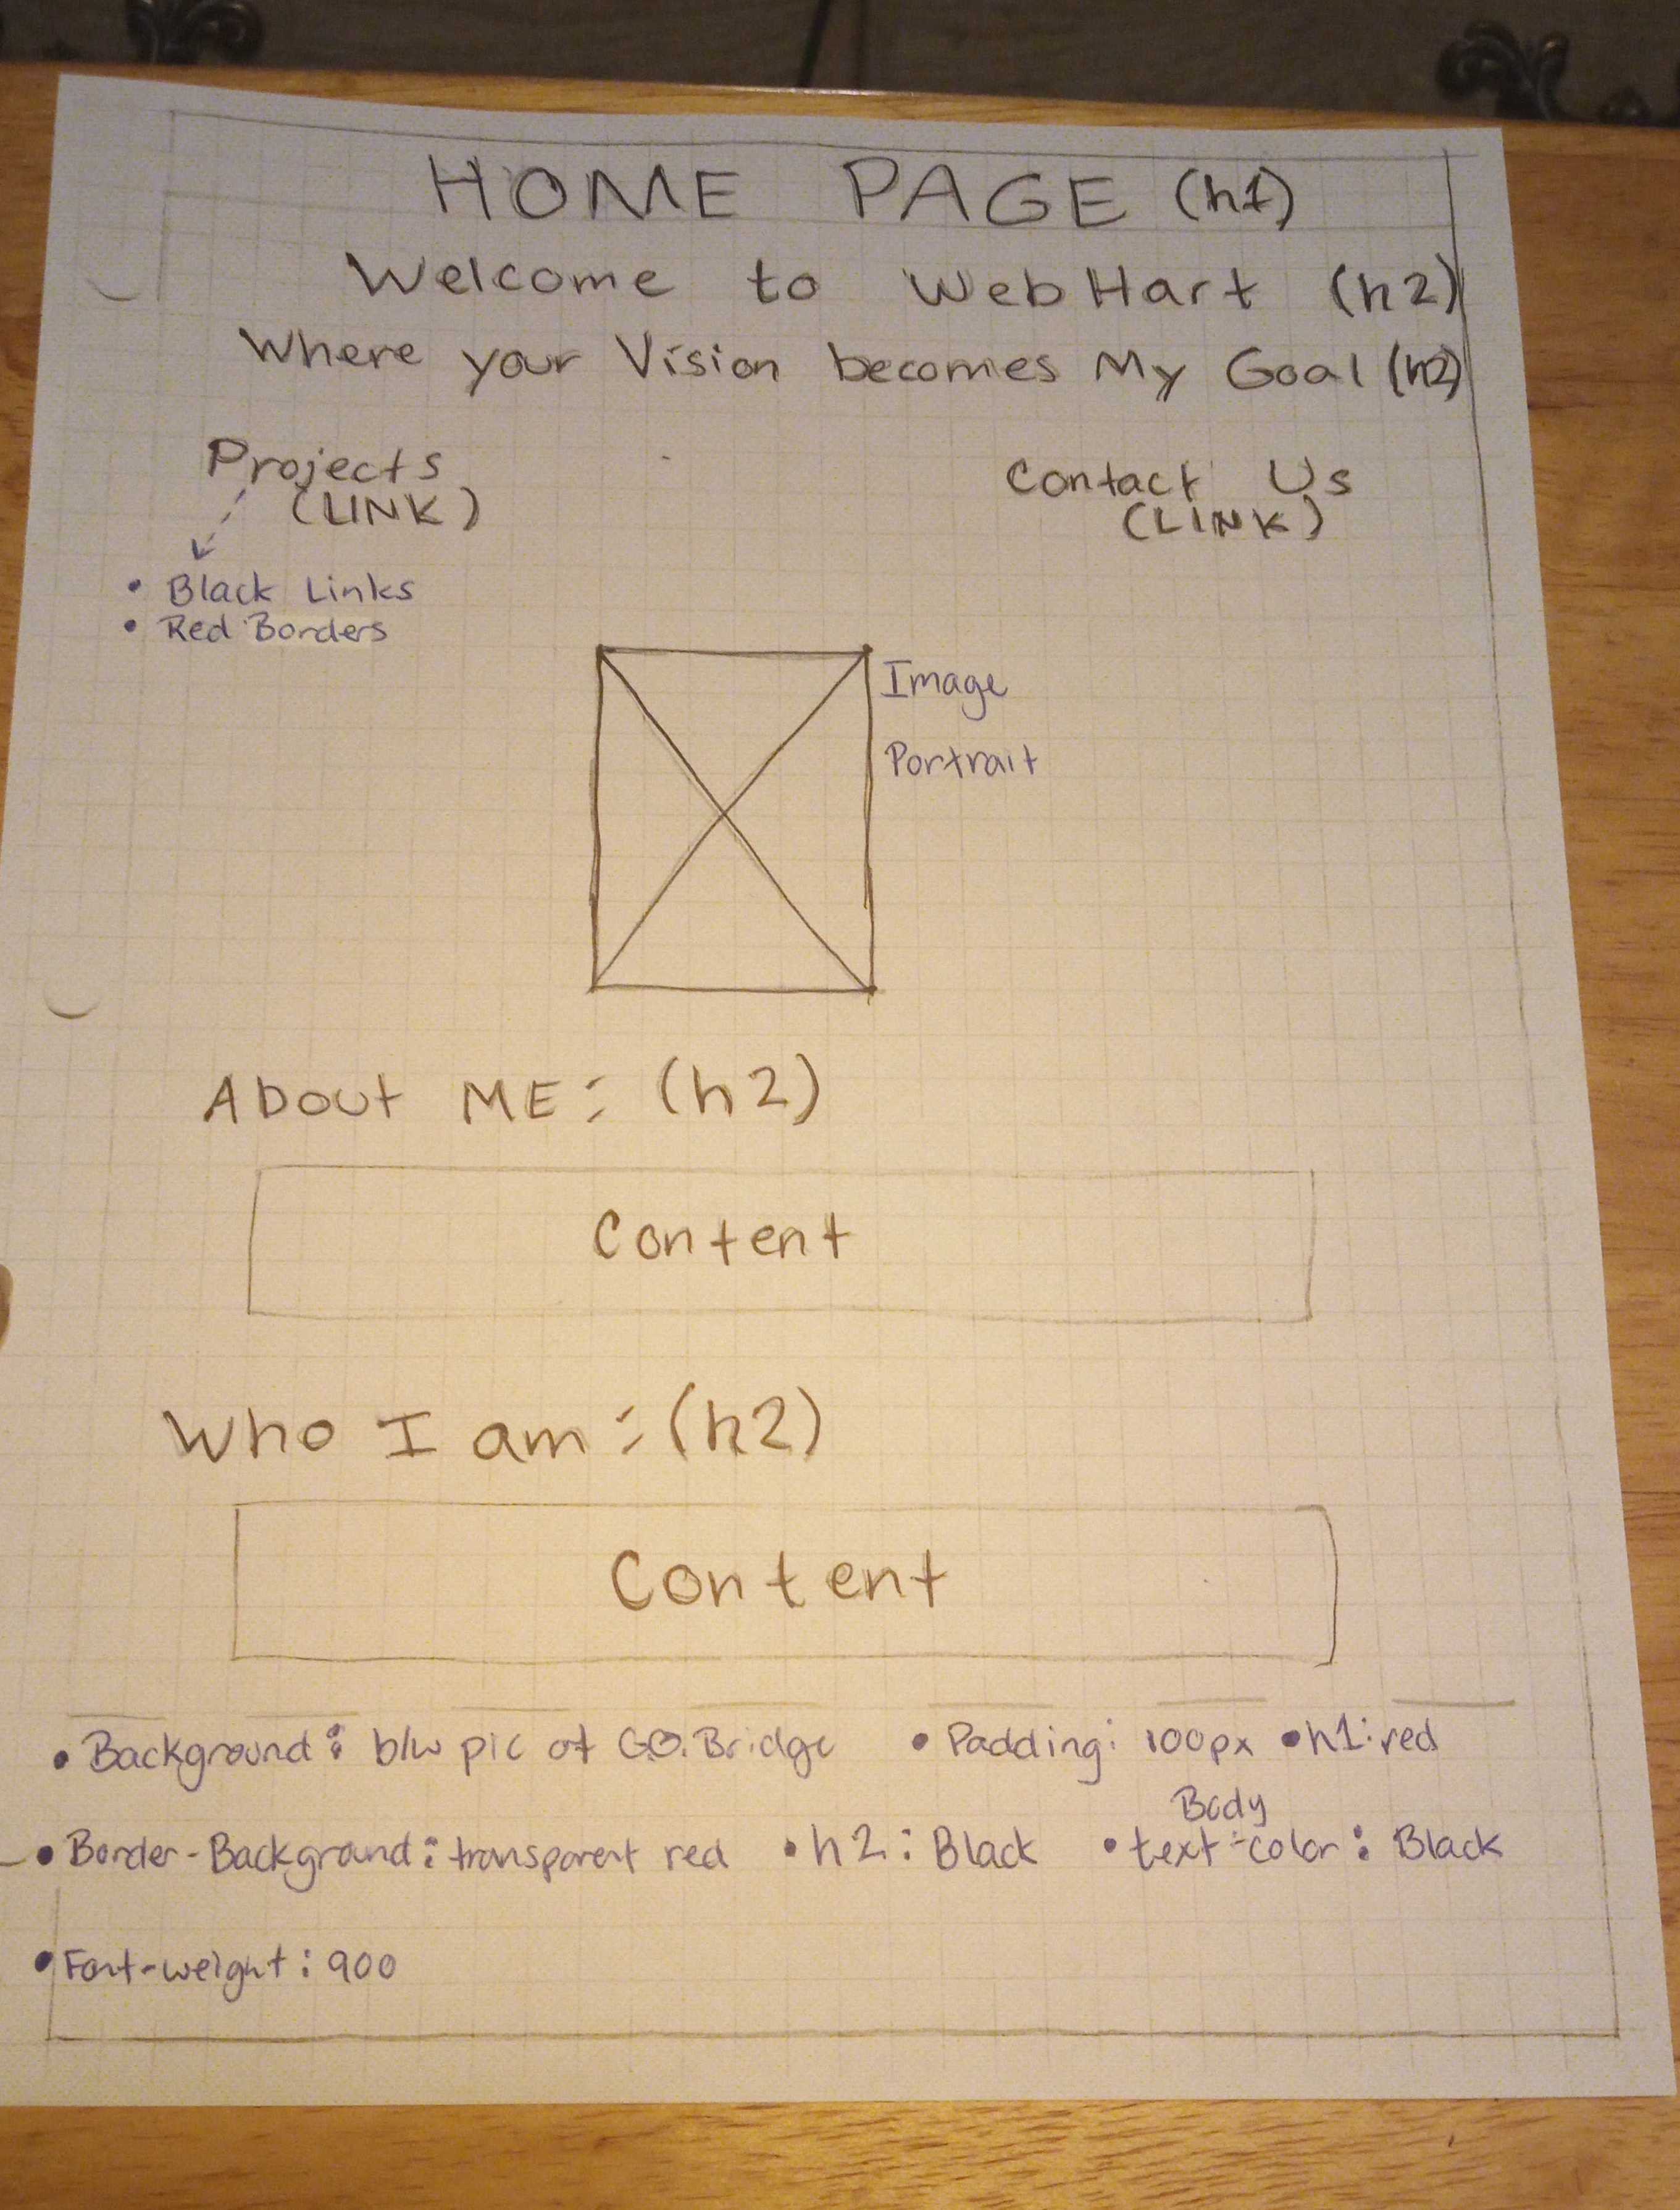 HOME PAGE (h1)
Welcome to WebHart (h2)
Where your Vision becomes My Goal (h2)
Projects
(LINK)
Contact Us
(LINK)
• Black Links
• Red Borders
Image
Portrait
About ME: (h2)
Content
Who I am: (h2)
Content
• Background: b/w pic of G.O. Bridge • Padding: 100px • h1: red
• Border-Background: transparent red • h2: Black • Body text-color: Black
• Font-weight: 900